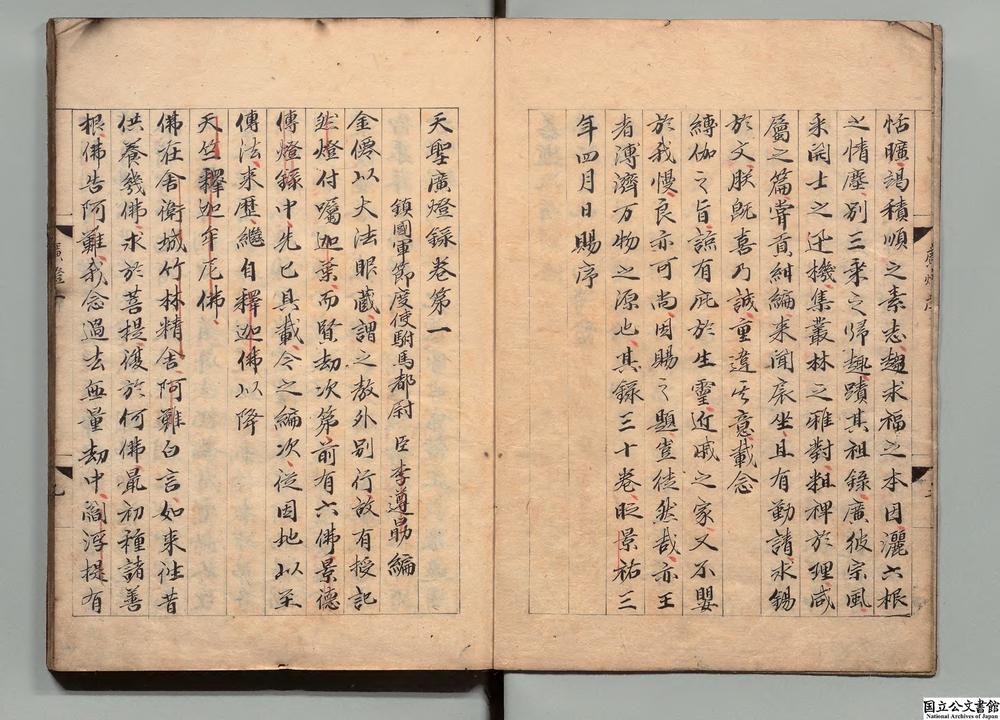 恬曠、竭積順之素志、趣求福之本因、灑六根
之情塵、別三乘之歸趣、蹟其祖錄、廣彼宗風、
采開士之迅機、集叢林之雅對、粗裨於理、咸
屬之篇、嘗貢紺編、來聞扆坐、且有勤請、求錫
於文、朕既喜乃誠、重違其意、載念
縛伽之旨、諒有庇於生靈、近戚之家、又不嬰
於我慢、良亦可尚、因賜之題、豈徒然哉、亦王
者溥濟万物之源也、其錄三十卷、時景祐三
年四月日賜序
天聖廣燈錄卷第一
鎮國軍節度使駙馬都尉 臣 李遵勗 編
金僊以大法眼藏、謂之教外別行、故有授記
然燈付囑迦葉、而賢劫次第、前有六佛、景德
傳燈錄中、先已具載、今之編次、從因地以至
傳法、來歷、繼自釋迦佛以降
天竺釋迦牟尼佛、
佛在舍衛城竹林精舍、阿難白言、如來往昔
供養幾佛、求於菩提、復於何佛、最初種諸善
根、佛告阿難、我念過去無量劫中、閻浮提有
廣燈一
九
国立公文書館
National Archives of Japan